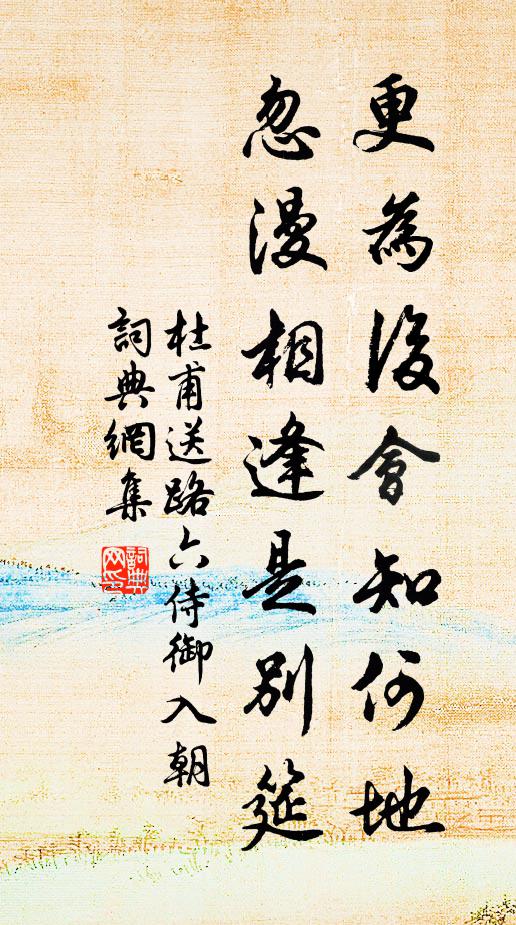 更為後會知何地
忽漫相逢是別筵
杜甫送路六侍御入朝
詞典網集
詞典网印